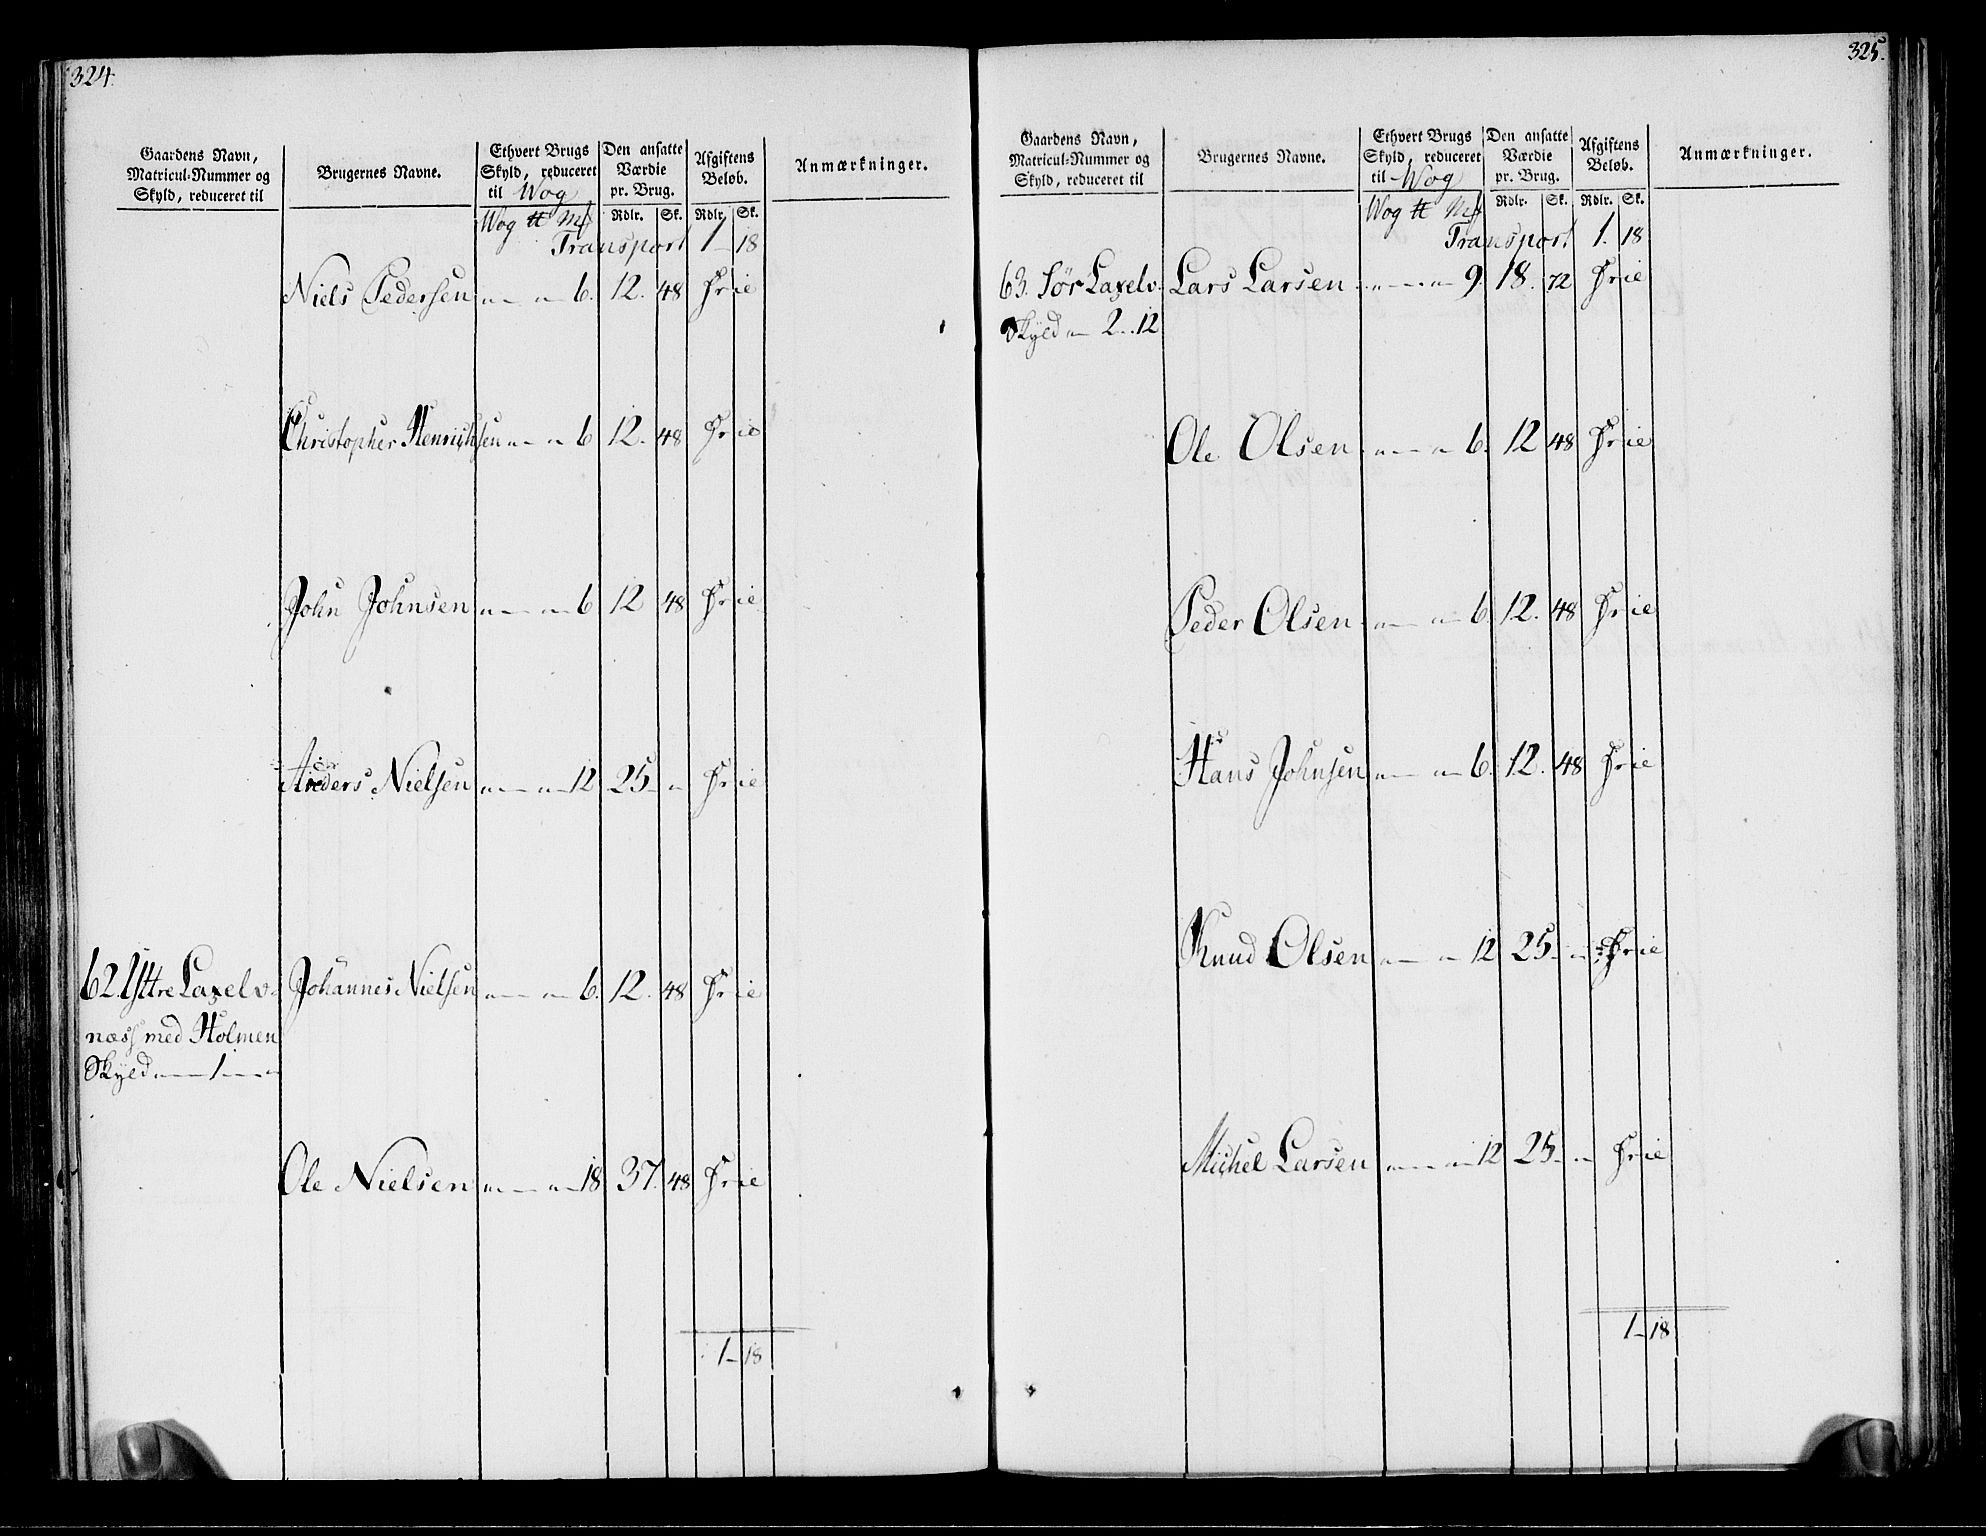 324.
Gaardens Navn, Matricul-Nummer og Skyld, reduceret til
Brugernes Navne.
Ethvert Brugs Skyld, reduceret til Wog
Den ansatte Værdie pr. Brug.
Afgiftens Beløb.
Anmærkninger.
Wog ℔ Mk Rdlr. Sk. Rdlr. Sk.
Transport 1 – 18
Niels Pedersen „ – „ 6. 12. 48 Frie
Christopher Henrichsen „ – „ 6 12. 48 Frie
John Johnsen „ – „ 6 12 48 Frie
Anders Nielsen „ – „ 12 25 – „ Frie
62. Yttre Laxelv- Johannes Nielsen „ – „ 6. 12. 48 Frie
næss med Holmen
Skyld „ – 1 – „
Ole Nielsen „ – „ 18 37. 48 Frie
1 – 18
325.
Gaardens Navn, Matricul-Nummer og Skyld, reduceret til
Brugernes Navne.
Ethvert Brugs Skyld, reduceret til Wog
Den ansatte Værdie pr. Brug.
Afgiftens Beløb.
Anmærkninger.
Wog ℔ Mk Rdlr. Sk. Rdlr. Sk.
Transport 1. 18
63. Sør Laxelv. Lars Larsen „ – „ 9. 18. 72 Frie
Skyld „ 2 . . 12
Ole Olsen „ – „ 6. 12 48 Frie
Peder Olsen „ – „ 6. 12. 48 Frie
Hans Johnsen „ – „ 6. 12. 48 Frie
Knud Olsen „ – „ 12 25 – „ Frie
Michel Larsen „ – „ 12 25 – „ Frie
1 – 18